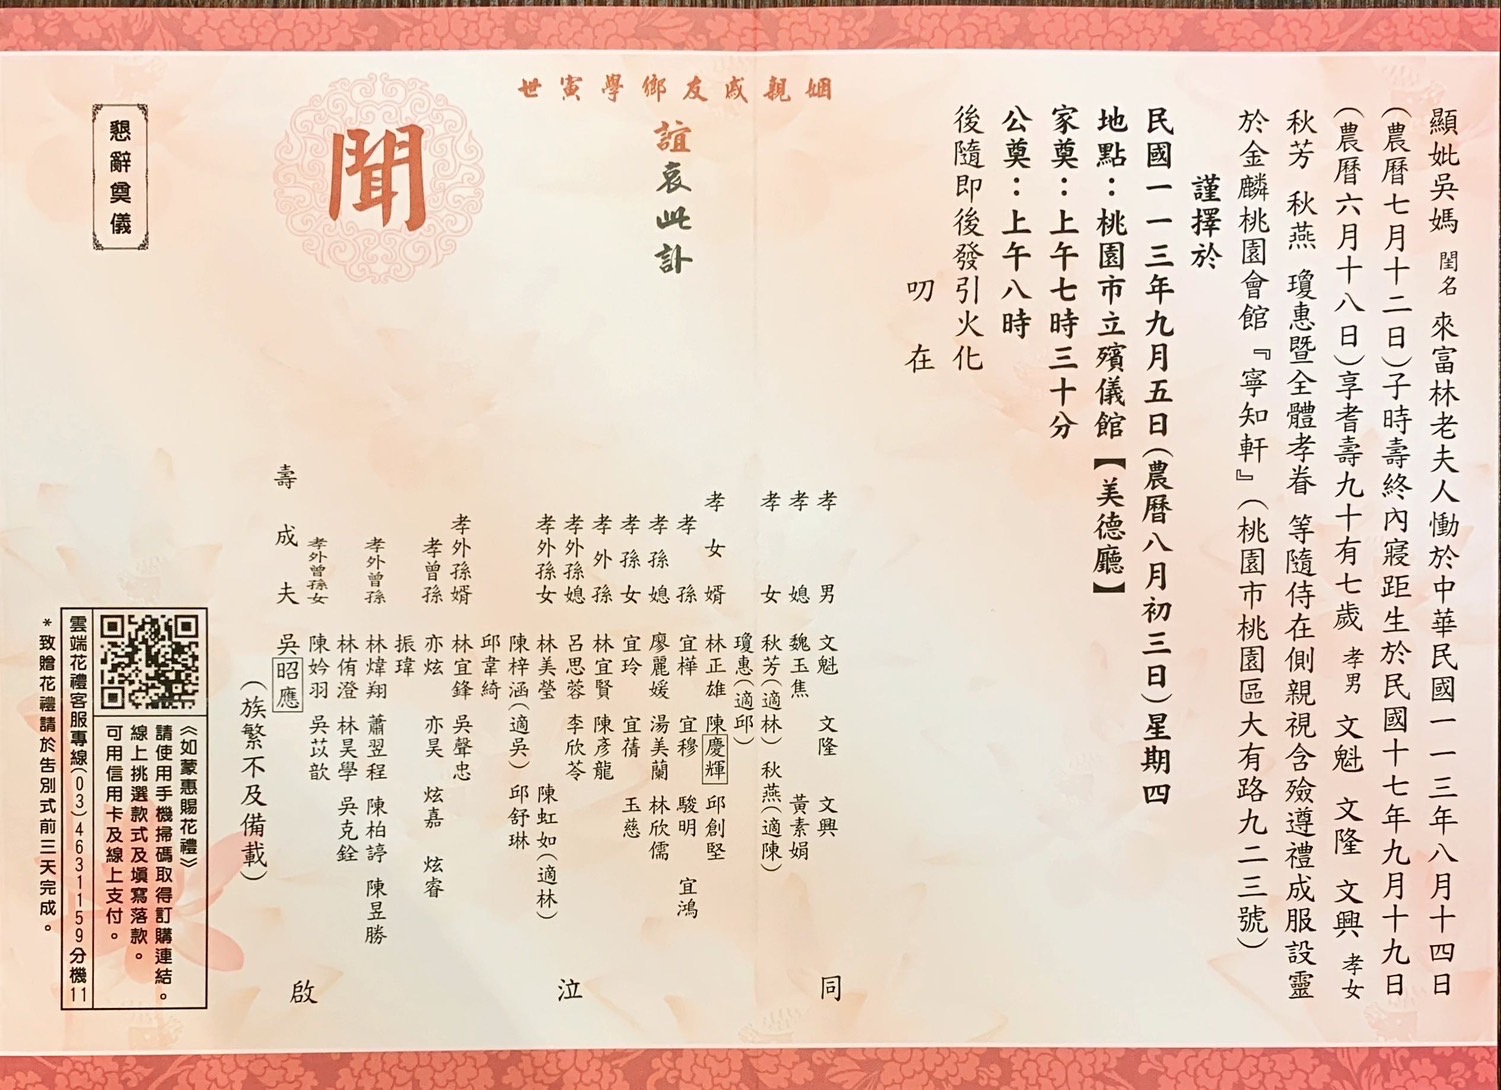 顯妣吳媽閨名來富林老夫人慟於中華民國一一三年八月十四日
(農曆七月十二日)子時壽終內寢距生於民國十七年九月十九日
(農曆六月十八日)享耆壽九十有七歲 孝男 文魁 文隆 文興 孝女
秋芳 秋燕 瓊惠暨全體孝眷 等隨侍在側親視含殮遵禮成服設靈
於金麟桃園會館『寧知軒』(桃園市桃園區大有路九二三號)
謹擇於
民國一一三年九月五日(農曆八月初三日)星期四
地點：桃園市立殯儀館【美德廳】
家奠：上午七時三十分
公奠：上午八時
後隨即後發引火化
叨在
姻親戚友鄉學寅世
誼哀此訃
聞
孝男 文魁 文隆 文興
孝媳 魏玉焦 黃素娟
孝女 秋芳(適林) 秋燕(適陳)
瓊惠(適邱)
孝女婿 林正雄 陳慶輝 邱創堅
孝孫 宜樺 宜穆 駿明 宜鴻
孝孫媳 廖麗媛 湯美蘭 林欣儒
孝孫女 宜玲 宜蒨 玉慈
孝外孫 林宜賢 陳彥龍
孝外孫媳 呂思蓉 李欣芩
孝外孫女 林美瑩 陳虹如(適林)
陳梓涵(適吳) 邱舒琳
邱韋綺
孝外孫婿 林宜鋒 吳聲忠
孝曾孫 亦炫 亦昊 炫嘉 炫睿
振瑋
孝外曾孫 林煒翔 蕭翌程 陳柏諄 陳昱勝
林侑澄 林昊學 吳克銓
孝外曾孫女 陳妗羽 吳苡歆
壽成夫 吳昭應
(族繁不及備載)
同
泣
啟
懇辭奠儀
《如蒙惠賜花禮》
請使用手機掃碼取得訂購連結。
線上挑選款式及填寫落款。
可用信用卡及線上支付。
雲端花禮客服專線(03)4631159分機11
*致贈花禮請於告別式前三天完成。